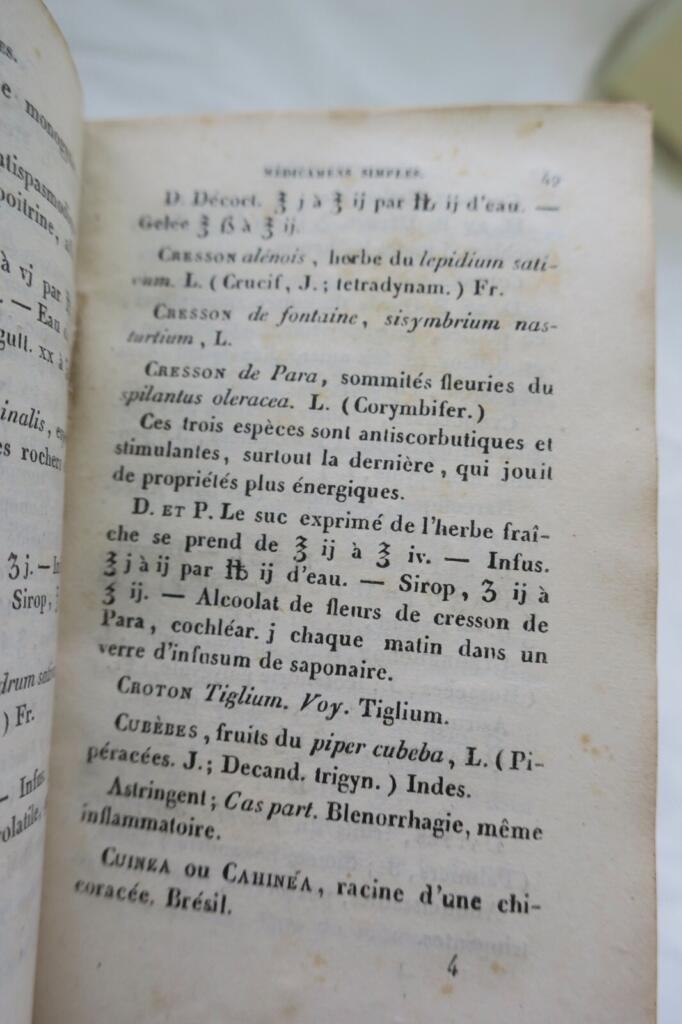 MÉDICAMENS SIMPLES. 49
D. Décoct. ℥ j à ℥ ij par ℔ ij d'eau. —
Gelée ℥ ß à ℥ ij.
CRESSON alénois, herbe du lepidium sati-
vum. L. (Crucif, J.; tetradynam.) Fr.
CRESSON de fontaine, sisymbrium nas-
turtium, L.
CRESSON de Para, sommités fleuries du
spilantus oleracea. L. (Corymbifer.)
Ces trois espèces sont antiscorbutiques et
stimulantes, surtout la dernière, qui jouit
de propriétés plus énergiques.
D. ET P. Le suc exprimé de l'herbe fraî-
che se prend de ℥ ij à ℥ iv. — Infus.
℥ j à ij par ℔ ij d'eau. — Sirop, ʒ ij à
℥ ij. — Alcoolat de fleurs de cresson de
Para, cochléar. j chaque matin dans un
verre d'infusum de saponaire.
CROTON Tiglium. Voy. Tiglium.
CUBÈBES, fruits du piper cubeba, L. (Pi-
péracées. J.; Decand. trigyn.) Indes.
Astringent; Cas part. Blenorrhagie, même
inflammatoire.
CUINEA OU CAHINÉA, racine d'une chi-
coracée. Brésil.
4